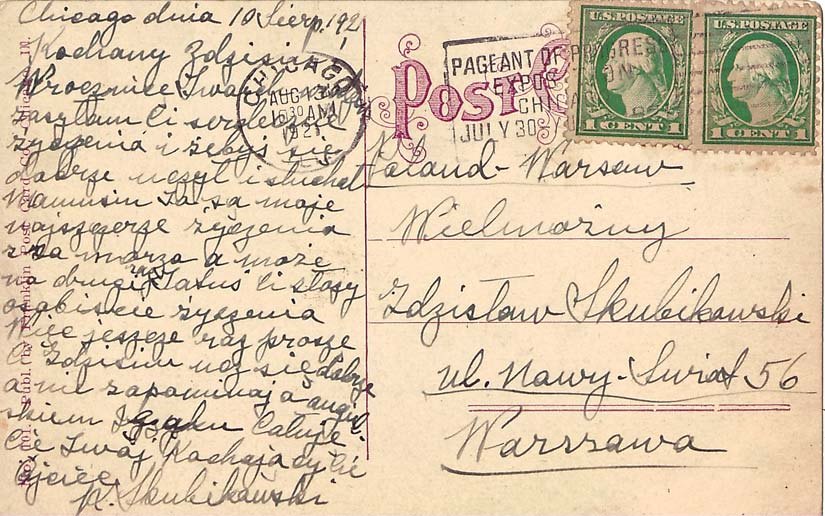 Chicago dnia 10 Sierp. 192
Kochany Zdzisiu
W rocznicę Twoich
zasyłam Ci serdeczne
życzenia i żebyś się
dobrze uczył i słuchał
Mamusiu To są moje
najszczersze życzenia
za morza a może
na drugi rok Tatuś Ci złoży
osobiście życzenia
Więc jeszcze raz proszę
Ci Zdzisiu ucz się dobrze
a nie zapominaj o angiel-
skiem Całuje
Cię Twój Kochający Cię
Ojciec
K. Skubikowski
No. 601. Publ. by Franklin Post Card Co., Chicago, Ill.
CHICAGO, ILL.
AUG 13
630 AM
1921
Post
PAGEANT OF PROGRESS
EXPOSITION
CHICAGO
JULY 30
U.S. POSTAGE
1 CENT 1
U.S. POSTAGE
1 CENT 1
Poland-Warsaw
Wielmożny
Zdzisław Skubikowski
ul. Nowy-Swiat 56
Warszawa